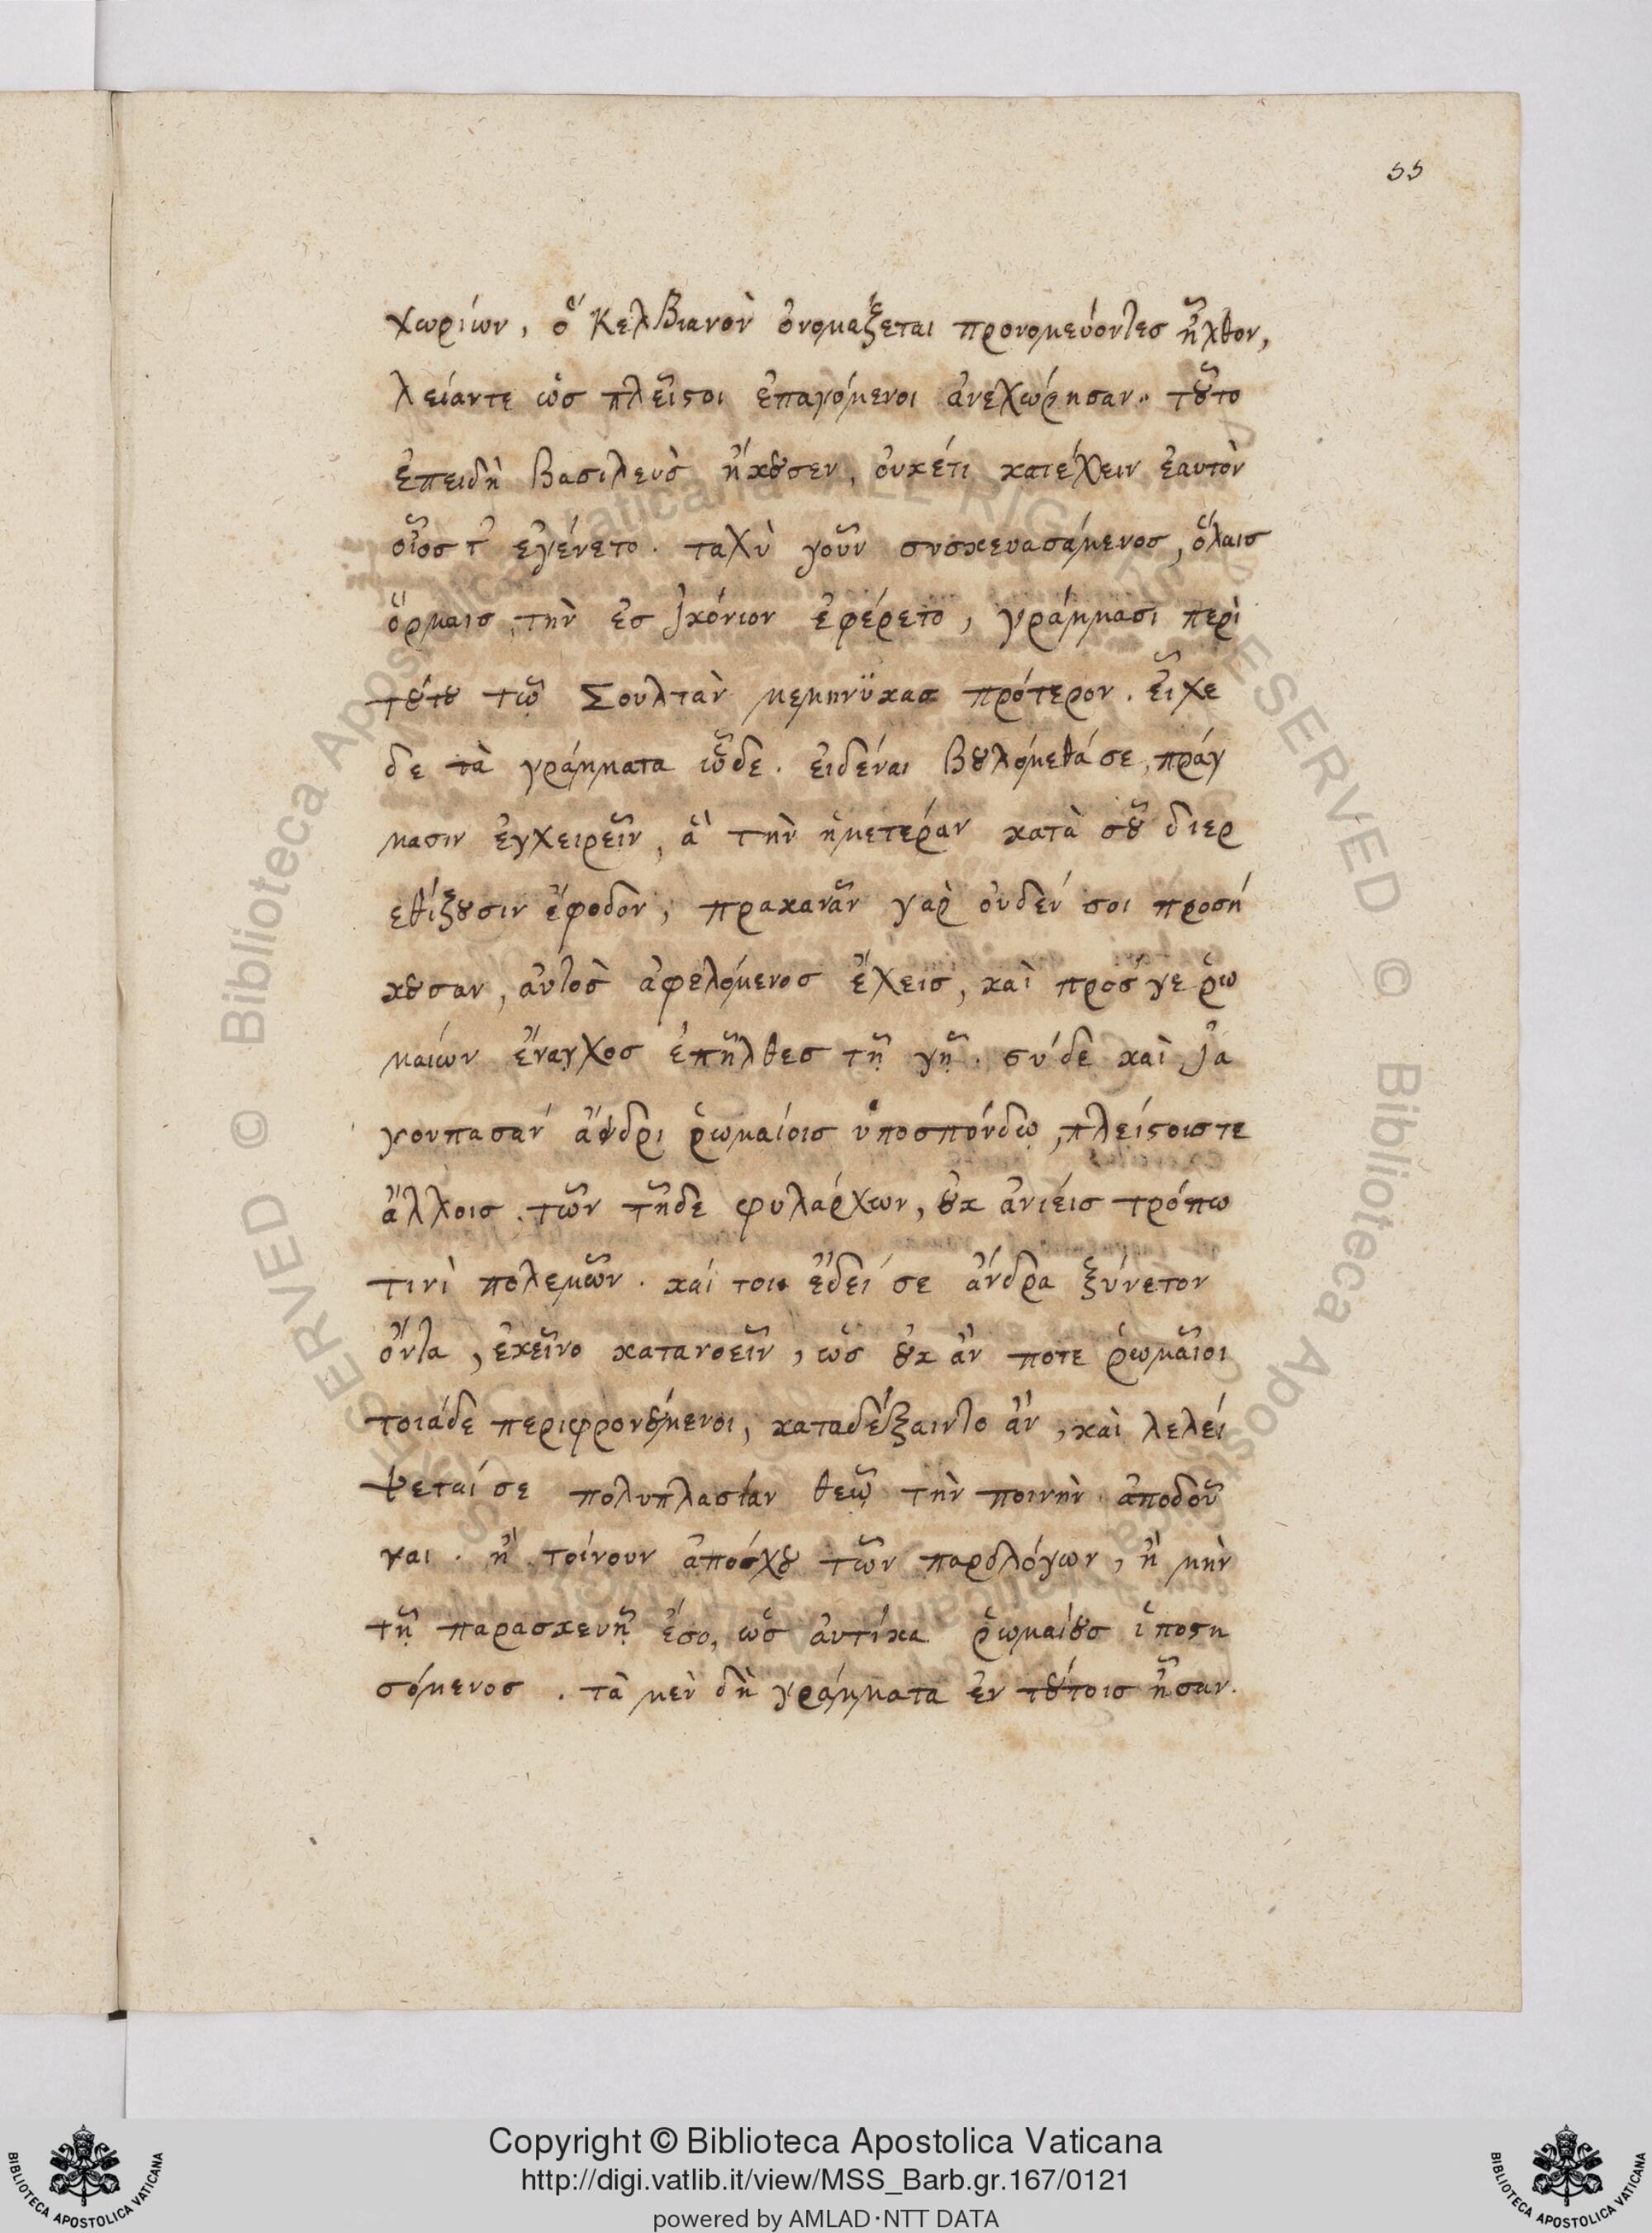 55
χωριίων, ὅ Κελβιανὸν ὀνομαξεται προνομεύοντες ἦχθον,
λείαντε ὡς πλεῖστοι ἐπαγόμενοι ἀνεχώρησαν. τοῦτο
ἐπειδὴ βασιλεὺς ἤκουσεν, ὀυκέτι κατέχειν ἑαυτὸν
οἷος τ' ἐγένετο. ταχὺ γοῦν συσκευασάμενος, ὅλαις
ὅρμαις, τὴν ἐς Ἰκόνιον ἐφέρετο, γράμμασι περὶ
τούτου τῷ Σουλτὰν μεμηνϋκας πρότερον. εἶχε
δε τὰ γράμματα ὧδε. ἐιδέναι βουλόμεθάσε, πράγ
μασιν ἐγχειρεῖν, ἃ τὴν ἡμετέραν κατὰ σοῦ διερ
εθίξουσιν ἔφοδον, πρακανᾶν γαρ ὀυδέν σοι προσή
κουσαν, ἀυτὸς ἀφελόμενος ἔχεις, καὶ πρόσγε ῥω
μαίων ἔναγχος ἐπῆλθες τῇ γῇ. σύ δε καὶ ἰα
γουπασαν ἄνδρι ῥωμαίοις ὑποσπόνδῳ, πλείστοιστε
ἄλλοις τῶν τῇδε φυλάρχων, οὐκ ἀνιέις τρόπω
τινὶ πολεμῶν. καί τοι ἔδει σε ἄνδρα ξύνετον
ὄντα, ἐκεῖνο κατανοεῖν, ὡς οὐκ ἄν ποτε ῥωμαῖοι
τοιάδε περιφρονούμενοι, καταδέξαιντο ἂν, καὶ λελεί
ψεταί σε πολυπλασίαν θεῷ τὴν ποινὴν ἀποδοῦ
ναι. ἢ τοίνουν ἀπόσχου τῶν παρολόγων, ἢ μὴν
τῇ παρασκευῇ ἔσο, ὡς ἀυτίκα ῥωμαίους ὑποστη
σόμενος. τὰ μεν δὴ γράμματα ἐν τούτοις ἦσαν.
Copyright © Biblioteca Apostolica Vaticana
http://digi.vatlib.it/view/MSS_Barb.gr.167/0121
powered by AMLAD·NTT DATA